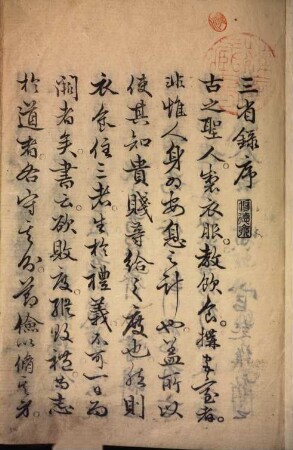 三省録序
古之聖人製衣服教飲食搆宮室者
非惟人身の安息之計也蓋所以
使其知貴賤尊給之度也然則
衣食住三者生於禮義不可一日而
闕者矣書云欲敗度縱敗禮苟志
於道者各守其分節儉以脩其身